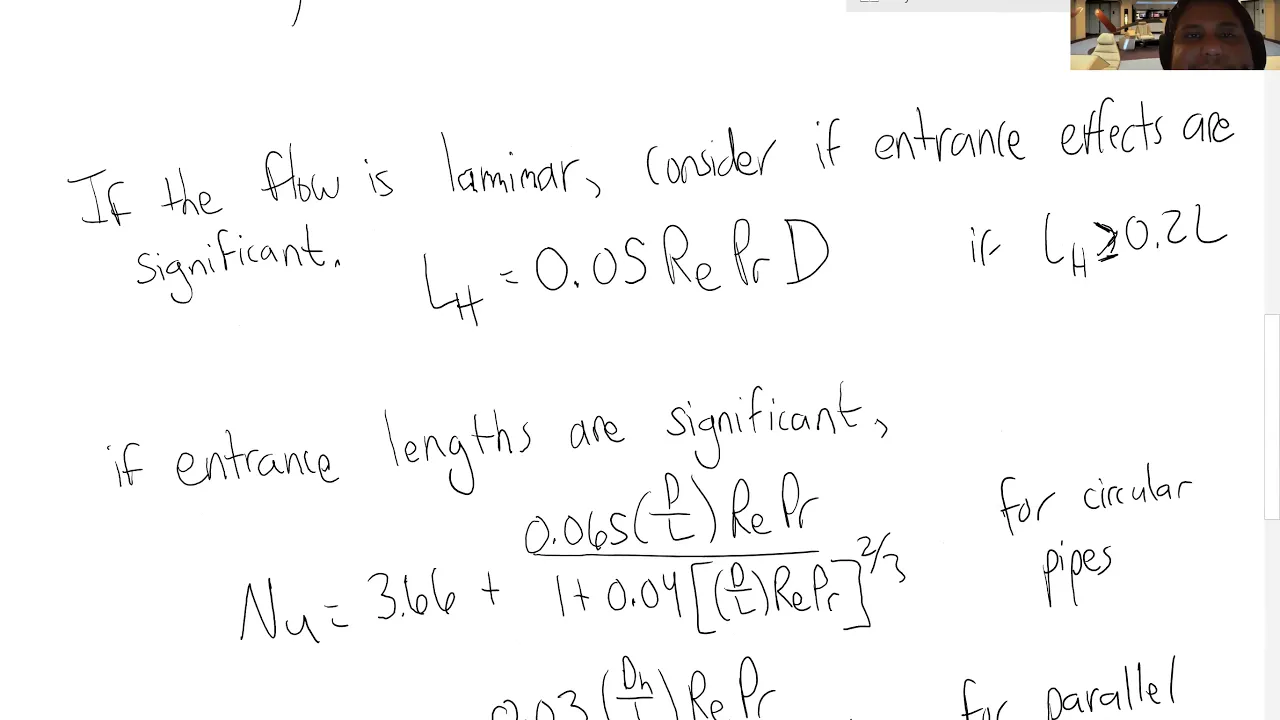 If the flow is laminar, consider if entrance effects are
significant. L_H = 0.05 Re Pr D if L_H ≥ 0.2L
if entrance lengths are significant,
Nu = 3.66 + 0.065(D/L) Re Pr / 1 + 0.04 [(D/L) Re Pr]^2/3 for circular
pipes
0.03 (Dh/L) Re Pr for parallel